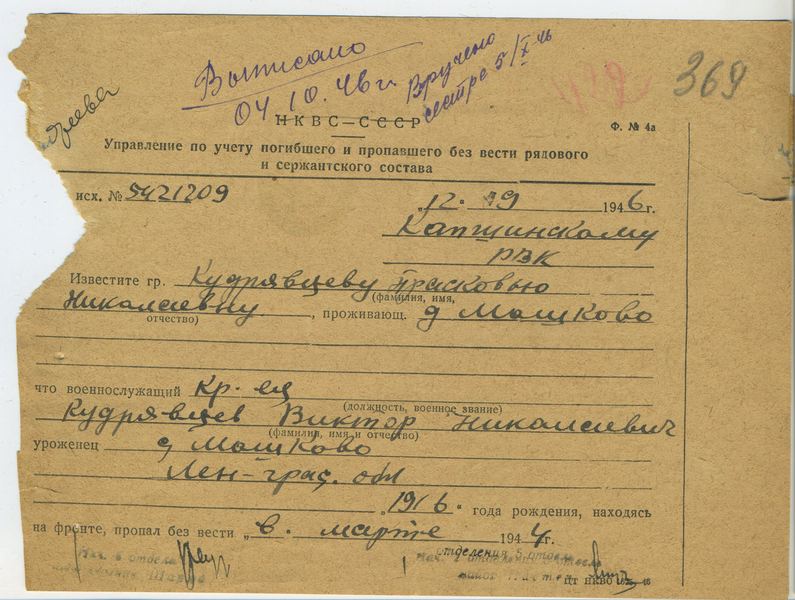 Выписано
04.10.46 г.
Вручено
сестре 5/X 46
369
НКВС—СССР
Ф. № 4а
Управление по учету погибшего и пропавшего без вести рядового
и сержантского состава
исх. № 5421209
12. 9 1946 г.
Капшинскому
РВК
Известите гр. Кудрявцеву Прасковью
(фамилия, имя,
Николаевну , проживающ. д Машково
отчество)
что военнослужащий кр-ец
(должность, военное звание)
Кудрявцев Виктор Николаевич
(фамилия, имя и отчество)
уроженец д Машково
Лен-град. обл
1916 года рождения, находясь
на фронте, пропал без вести „в" марте 1944 г.
Нач. 6 отдела
отделения 5 отдела